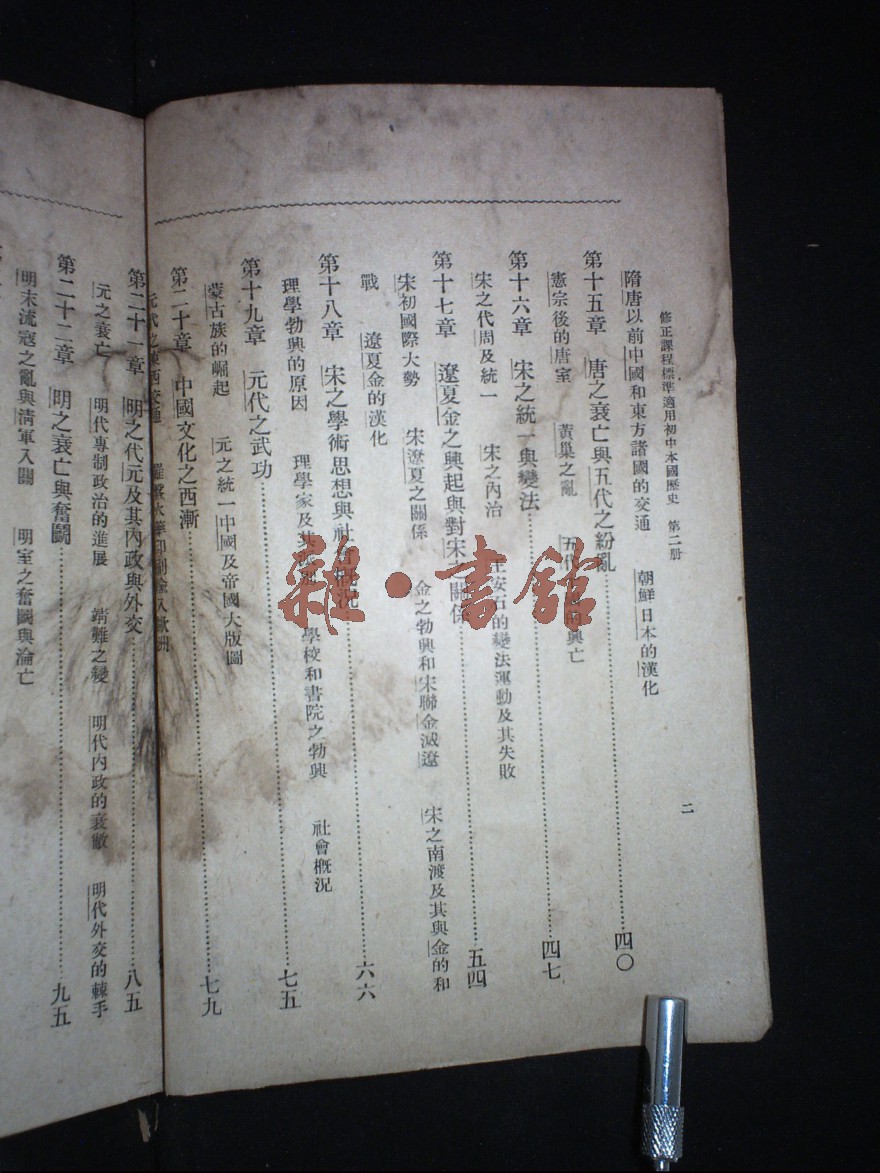 修正課程標準適用初中本國歷史 第二册
二
隋唐以前中國和東方諸國的交通 朝鮮日本的漢化
第十五章 唐之衰亡與五代之紛亂……四〇
憲宗後的唐室 黃巢之亂 五代 興亡
第十六章 宋之統一與變法……四七
宋之代周及統一 宋之內治 王安石的變法運動及其失敗
第十七章 遼夏金之興起與對宋之關係……五四
宋初國際大勢 宋遼夏之關係 金之勃興和宋聯金滅遼 宋之南渡及其與金的和
戰 遼夏金的漢化
第十八章 宋之學術思想與社會概況……六六
理學勃興的原因 理學家及其 學校和書院之勃興 社會概況
第十九章 元代之武功……七五
蒙古族的崛起 元之統一中國及帝國大版圖
第二十章 中國文化之西漸……七九
元代之東西交通 羅盤火藥印刷 入歐洲
第二十一章 明之代元及其內政與外交……八五
元之衰亡 明代專制政治的進展 靖難之變 明代內政的衰敝 明代外交的棘手
第二十二章 明之衰亡與奮鬭……九五
明末流寇之亂與淸軍入關 明室之奮鬭與淪亡
雜·書館